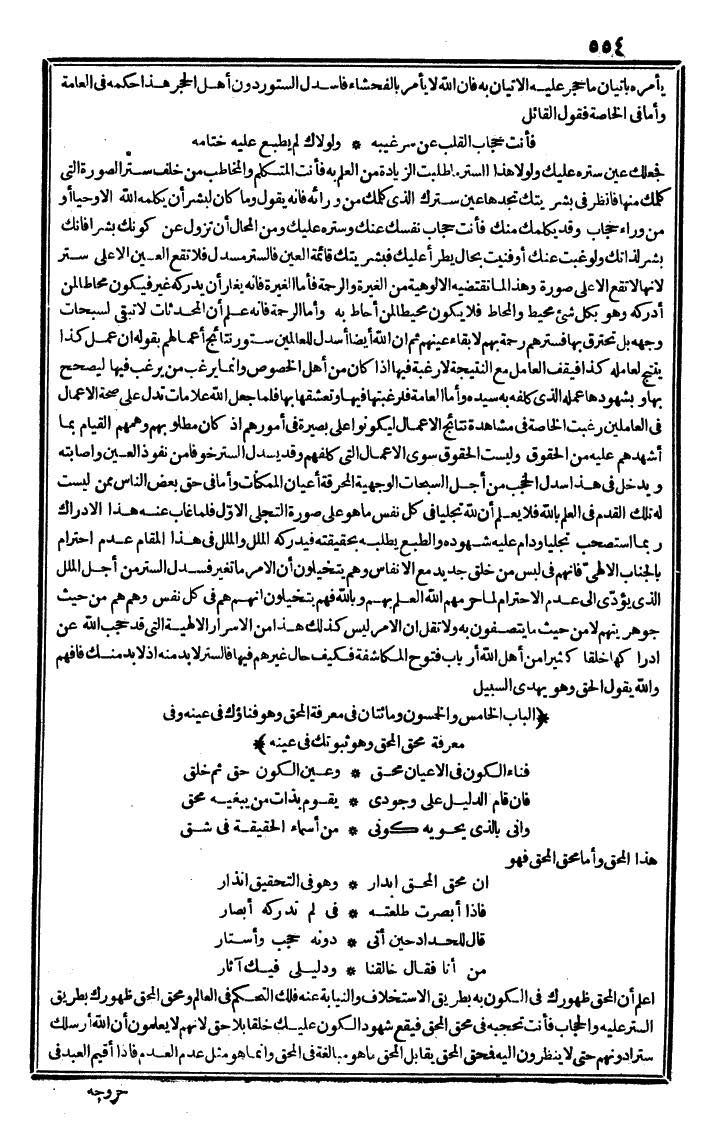 ٥٥٤
يأمره باتيان ما حجر عليه الاتيان به فان الله لا يأمر بالفحشاء فاسدل الستور دون أهل الحجر هذا حكمه فى العامة
وأما فى الخاصة فقول القائل
فأنت حجاب القلب عن سر غيبه * ولولاك لم يطبع عليه ختامه
فجعلك عين ستره عليك ولولا هذا الستر ما طلبت الزيادة من العلم به فأنت المتكلم والمخاطب من خلف ستر الصورة التى
كلمك منها فانظر فى بشريتك تجدها عين سترك الذى كلمك من ورائه فانه يقول وما كان لبشر أن يكلمه الله الا وحيا أو
من وراء حجاب وقد يكلمك منك فأنت حجاب نفسك عنك وستره عليك ومن المحال أن تزول عن كونك بشرا فانك
بشر لذاتك ولو غبت عنك أو فنيت بحال يطرأ عليك فبشريتك قائمة العين فالستر مسدل فلا تقع العين الا على ستر
لانها لا تقع الا على صورة وهذا لما تقتضيه الالوهية من الغيرة والرحمة فأما الغيرة فانه يغار أن يدركه غير فيكون محاطا لمن
أدركه وهو بكل شئ محيط والمحاط فلا يكون محيطا لمن أحاط به وأما الرحمة فانه علم أن المحدثات لا تبقى لسبحات
وجهه بل تحترق بها فسترهم رحمة بهم لابقاء عينهم ثم ان الله أيضا أسدل للعالمين ستور نتائج أعمالهم بقوله ان عمل كذا
ينتج لعامله كذا فيقف العامل مع النتيجة لا رغبة فيها اذا كان من أهل الخصوص وانما يرغب من يرغب فيها ليصحح
بها وبشهودها عمله الذى كلفه به سيده وأما العامة فلرغبتها فيها وتعشقها بها فلما جعل الله علامات تدل على صحة الاعمال
فى العاملين رغبت الخاصة فى مشاهدة نتائج الاعمال ليكونوا على بصيرة فى أمورهم اذ كان مطلوبهم وهمهم القيام بما
أشهدهم عليه من الحقوق وليست الحقوق سوى الاعمال التى كلفهم وقد يسدل الستر خوفا من نفوذ العين واصابته
ويدخل فى هذا سدل الحجب من أجل السبحات الوجهية المحرقة أعيان الممكنات وأما فى حق بعض الناس ممن ليست
له تلك القدم فى العلم بالله فلا يعلم أن لله تجليا فى كل نفس ما هو على صورة التجلى الاول فلما غاب عنه هذا الادراك
ربما استصحب تجليا ودام عليه شهوده والطبع يطلبه بحقيقته فيدركه الملل والملل فى هذا المقام عدم احترام
بالجناب الالهى فانهم فى لبس من خلق جديد مع الانفاس وهم يتخيلون أن الامر ما تغير فسدل الستر من أجل الملل
الذى يؤدى الى عدم الاحترام لما حرمهم الله العلم بهم وبالله فهم يتخيلون انهم هم فى كل نفس وهم هم من حيث
جوهريتهم لا من حيث ما يتصفون به ولا تقل ان الامر ليس كذلك هذا من الاسرار الالهية التى قد حجب الله عن
ادراكها خلقا كثيرا من أهل الله أرباب فتوح المكاشفة فكيف حال غيرهم فيها فالستر لابد منه اذ لابد منك فافهم
والله يقول الحق وهو يهدى السبيل
﴿الباب الخامس والخمسون ومائتان فى معرفة المحق وهو فناؤك فى عينه وفى
معرفة محق المحق وهو ثبوتك فى عينه﴾
فناء الكون فى الاعيان محق * وعين الكون حق ثم خلق
فان قام الدليل على وجودى * يقوم بذات من يبغيه محق
وانى بالذى يحويه كونى * من أسماء الحقيقة فى شق
هذا المحق وأما محق المحق فهو
ان محق المحق ابدار * وهو فى التحقيق انذار
فاذا أبصرت طلعته * فى لم تدركه أبصار
قال للحداد حين أتى * دونه حجب وأستار
من أنا فقال خالقنا * ودليلى فيك آثار
اعلم أن المحق ظهورك فى الكون به بطريق الاستخلاف والنيابة عنه فلك التحكم فى العالم ومحق المحق ظهورك بطريق
الستر عليه والحجاب فأنت تحجبه فى محق المحق فيقع شهود الكون عليك خلقا بلا حق لانهم لا يعلمون أن الله أرسلك
سترا دونهم حتى لا ينظرون اليه فمحق المحق يقابل المحق ما هو مبالغة فى المحق وانما هو مثل عدم العدم فاذا أقيم العبد فى
خروجه